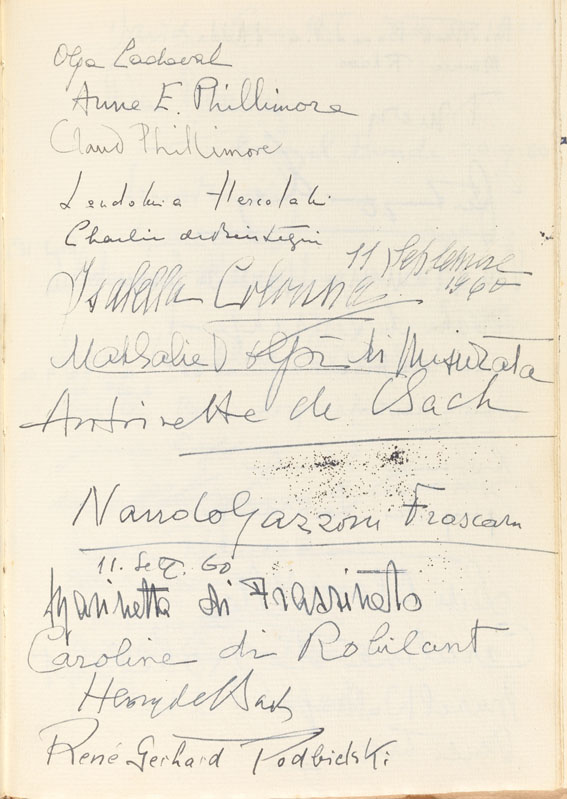 Olga Cadaval
Anne E. Phillimore
Claud Phillimore
Lendomia Hercolani
Charlie de Beistegui
11 Septembre
1960
Isabella Colonna
Nathalie Volpi di Misurata
Antoinette de Bach
Nando Gazzoni Frascara
11. Sett. 60
Marinetta di Frassineto
Caroline di Robilant
Henry de Bach
René Gerhard Podbielski